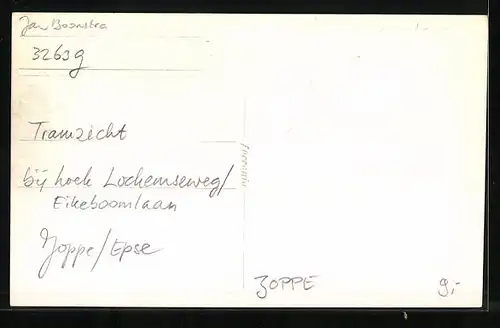 Jan Boonstra
32639
Tramzicht
bÿ hoek Lochemseweg/
Eikeboomlaan
Joppe/Epse
ZOPPE
9,-